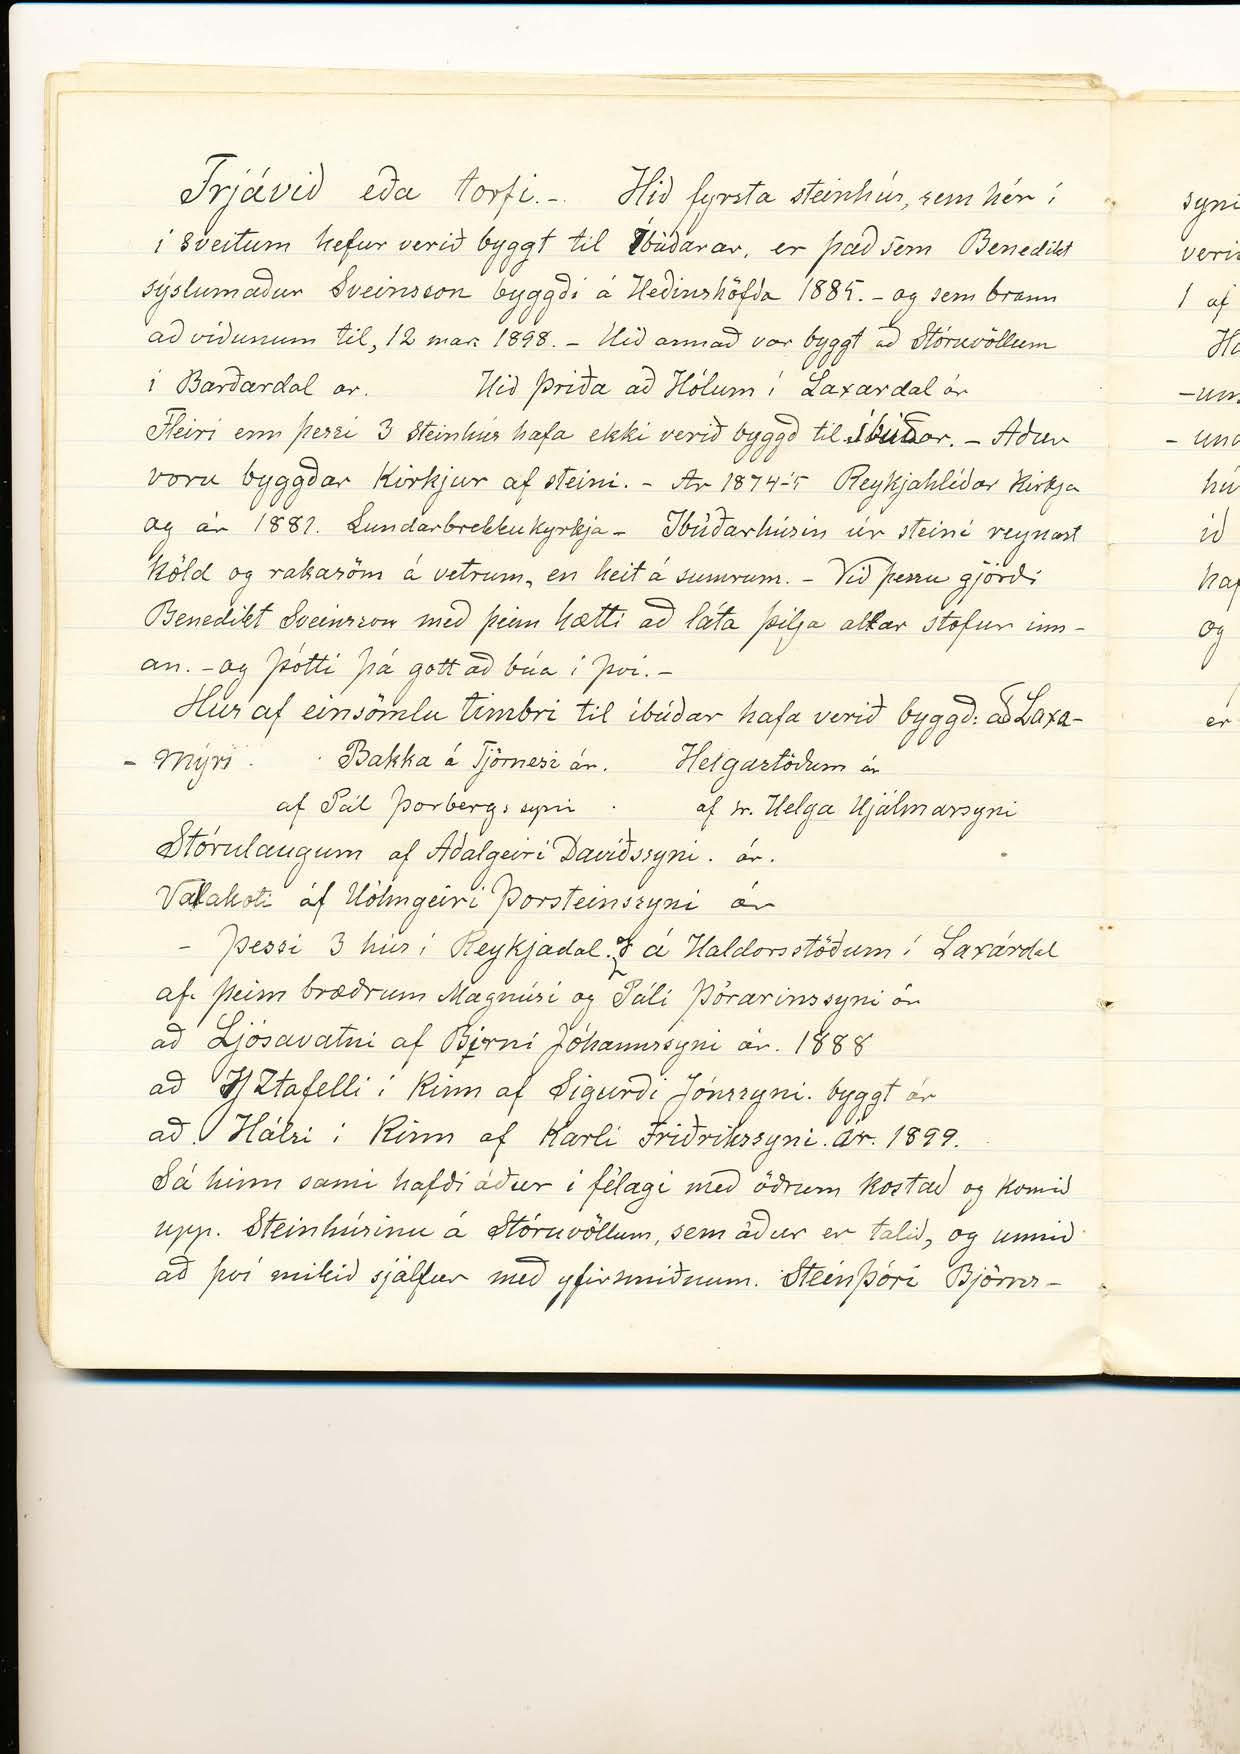 Trjávið eða torfi. - Hið fyrsta steinhús, sem hér í
í sveitum hefur verið byggt til íbúðarar, er það sem Benedikt
sýslumaður Sveinsson byggði á Héðinshöfða 1885. - og sem brann
að viðunum til, 12 mars 1898. - Hið annað var byggt að Stóruvöllum
í Barðardal ar. Hið þriða að Hólum í Laxardal ár
Fleiri enn þessi 3 steinhús hafa ekki verið byggð til íbúðar. - Aður
voru byggðar Kirkjur af steini. - Ar 1874-5 Reykjahlíðar Kirkja
og ár 1881. Lundarbrekkukyrkja - Ibúðarhúsin úr steini reynast
köld og rakasöm á vetrum, en heit á sumrum. - Við þessu gjörði
Benedikt Sveinsson með þeim hætti að láta þilja allar stofur inn-
an. - og þótti þá gott að búa í því. -
Hús af einsömlu timbri til íbúðar hafa verið byggð: að Laxa-
- mýri. Bakka á Tjörnesi ár. Helgastöðum ár
af Pál Þorbergs syni . af sr. Helga Hjálmarsyni
Stórulaugum af Aðalgeiri Davíðssyni. ár.
Vallakoti af Hólmgeiri Þorsteinssyni ár
- Þessi 3 hús í Reykjadal. á Haldorsstöðum í Laxárdal
af þeim bræðrum Magnúsi og Páli Þórarinssyni ár
að Ljósavatni af Birni Jóhannssyni ár. 1888
að Ystafelli í Kinn af Sigurði Jónssyni. byggt ár
að Hálsi í Kinn af Karli Friðrikssyni. ár. 1899.
Sá hinn sami hafði áður í félagi með öðrum kostað og komið
upp. Steinhúsinu á Stóruvöllum, sem áður er talið, og unnið
að því mikið sjálfur með yfirsmiðnum. Steinþóri Björns-
syni
1 af
- und
og
er